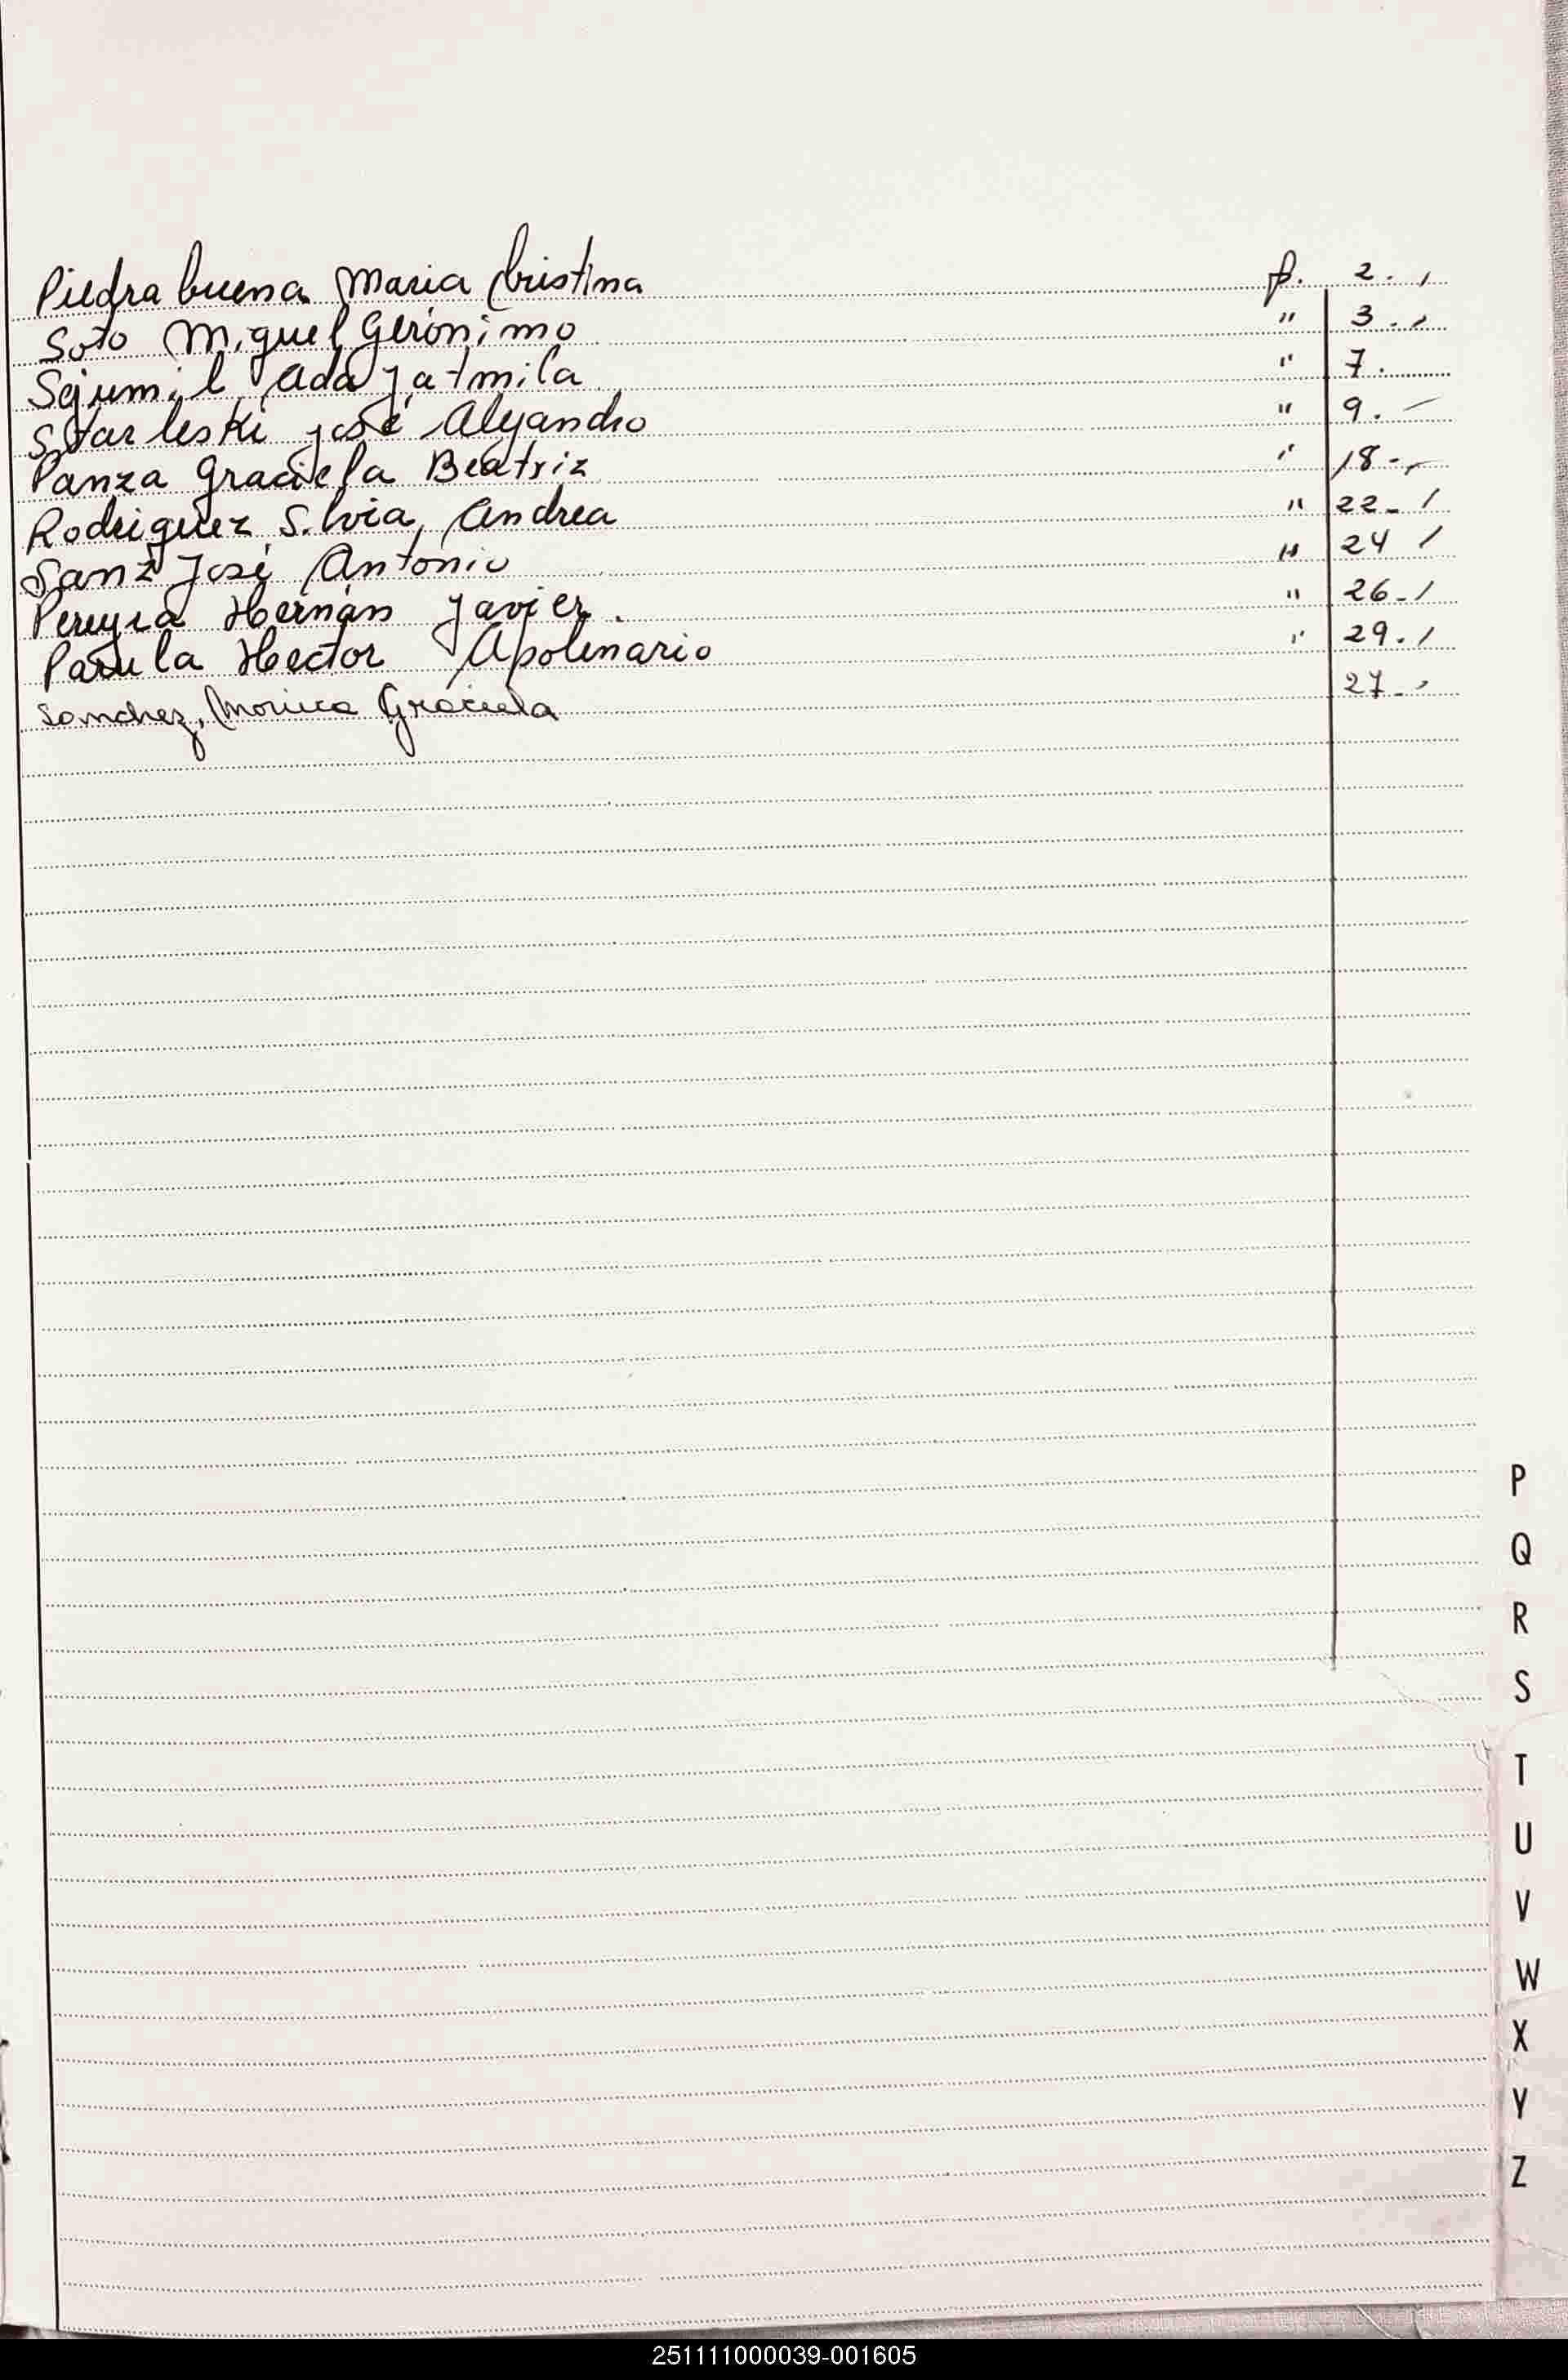 Piedra buena Maria Cristina p. 2.
Soto Miguel Gerónimo " 3.
Sejumil, Ada Jatmila " 7.
Starleski José Alejandro " 9. -
Panza Graciela Beatriz " 18 -
Rodriguez Silvia, Andrea " 22 - /
Sanz José Antonio " 24 /
Pereyra Hernán Javier. " 26 - /
Parula Hector Apolinario " 29. /
Sanchez, Monica Graciela 27 -
P
Q
R
S
T
U
V
W
X
Y
Z
251111000039-001605